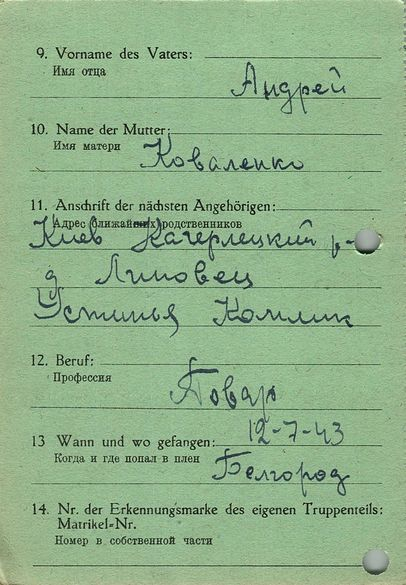 9. Vorname des Vaters:
Имя отца
Андрей
10. Name der Mutter:
Имя матери
Коваленко
11. Anschrift der nächsten Angehörigen:
Адрес ближайших родственников
Киев Кагерлецкий р-
д Липовец
Устинья Комлик
12. Beruf:
Профессия
Повар
13 Wann und wo gefangen:
12-7-43
Когда и где попал в плен
Белгород
14. Nr. der Erkennungsmarke des eigenen Truppenteils:
Matrikel-Nr.
Номер в собственной части